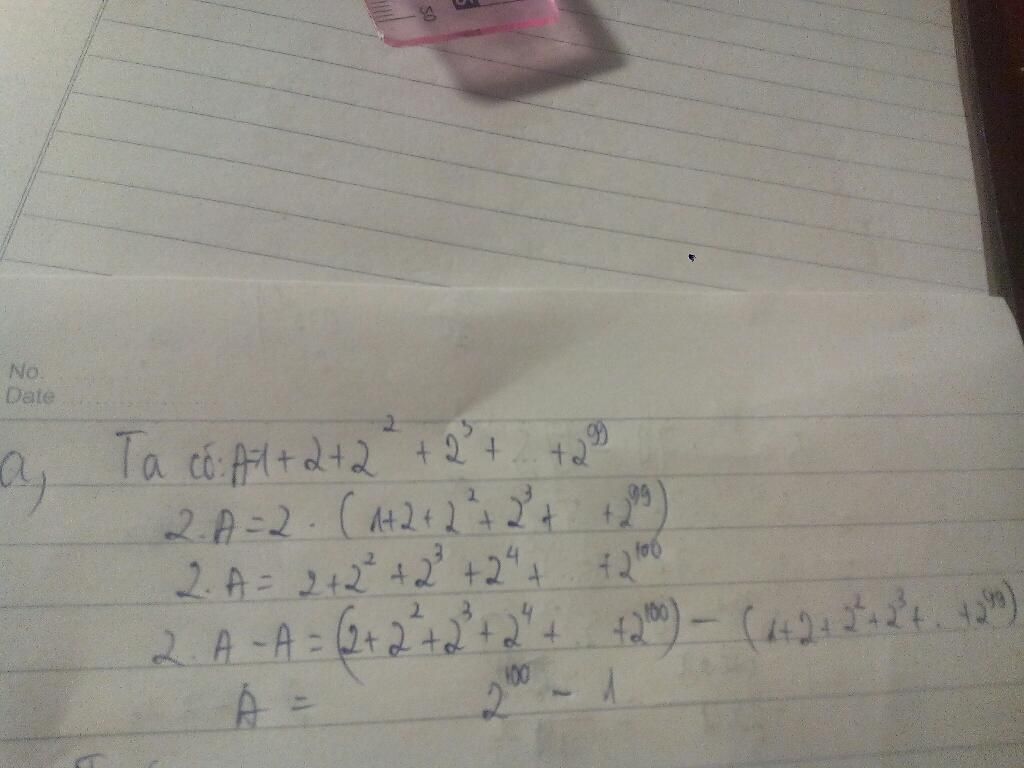 50
No.
Date
a, Ta có: A=1+2+2² +2³+ ... +2⁹⁹
2.A=2.(1+2+2²+2³+ ... +2⁹⁹)
2.A= 2+2²+2³+2⁴+ ... +2¹⁰⁰
2.A-A=(2+2²+2³+2⁴+ ... +2¹⁰⁰)-(1+2+2²+2³+...+2⁹⁹)
A= 2¹⁰⁰-1